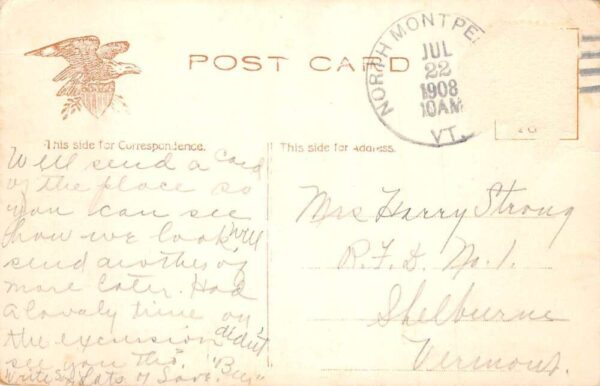 POST CARD
NORTH MONTPE
JUL
22
1908
10AM
VT.
This side for Correspondence.
This side for Address.
Will send a Card
of the place so
you can see
how we look, will
send another or
more later. Had
a lovely time on
the excursion didn't
see you tho'. "Bee"
Write Lots of Love.
Mrs Harry Strong
R.F.D. No. 1.
Shelburne
Vermont.